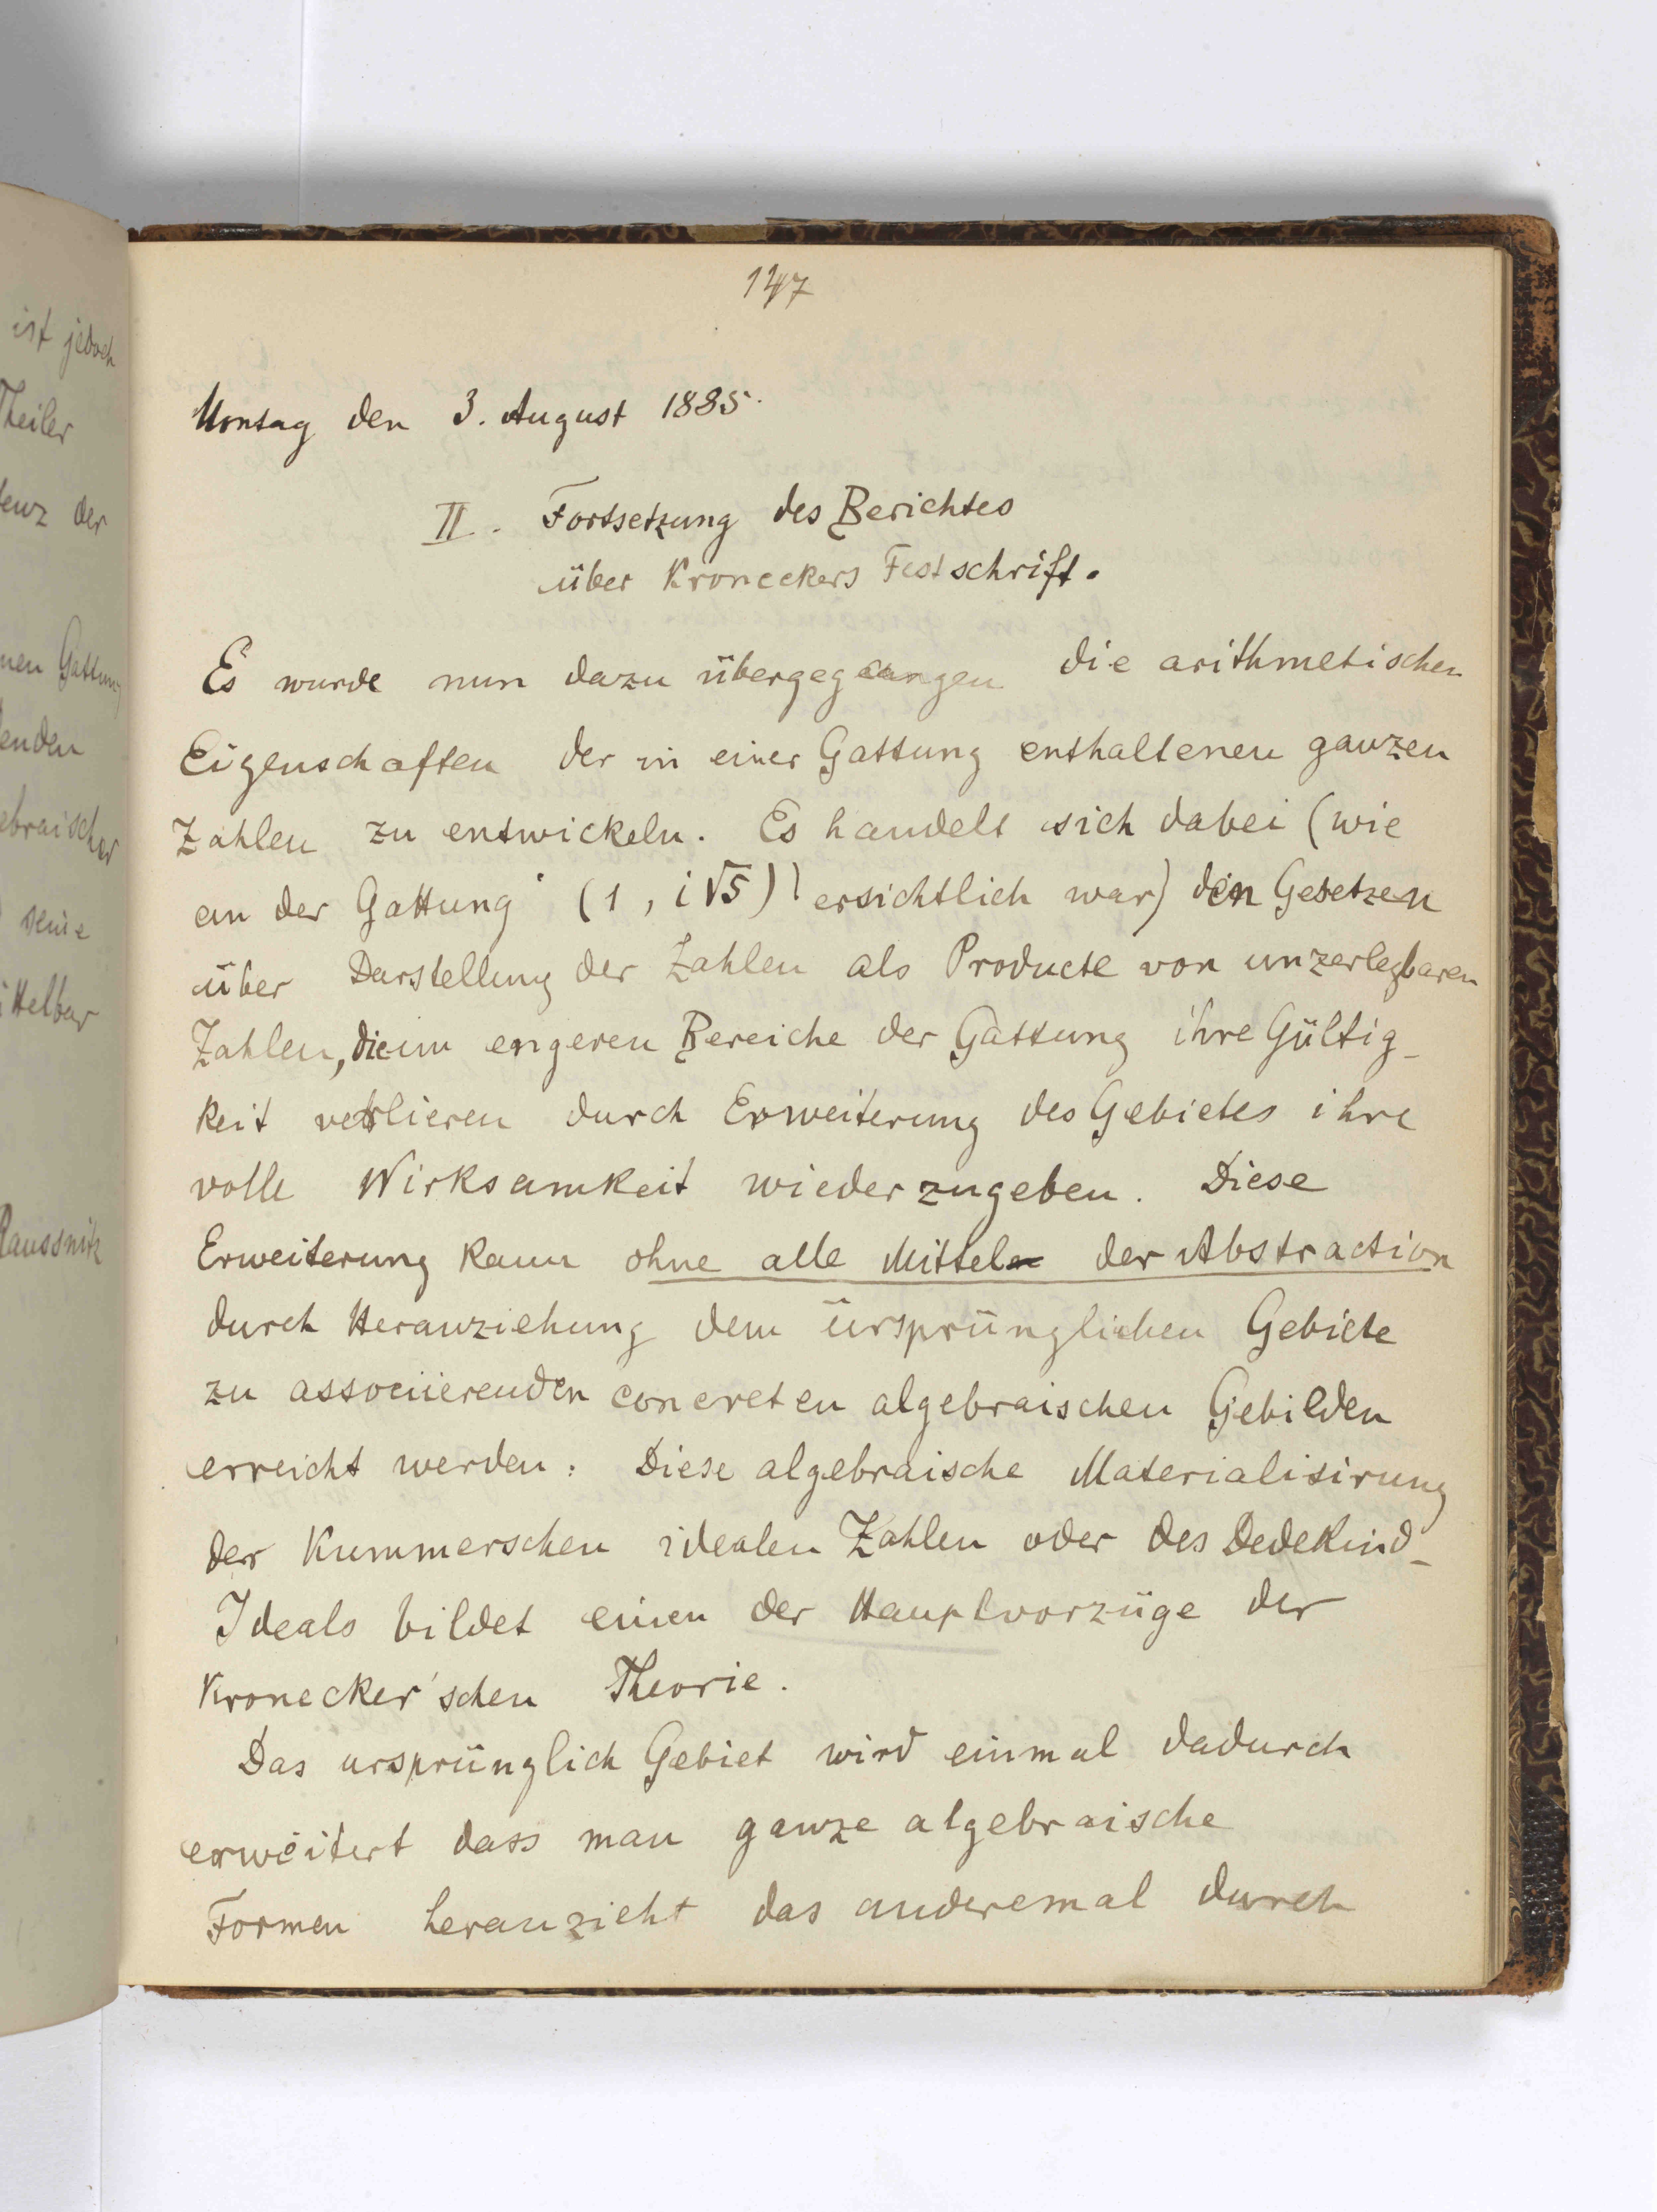 ist jedoch
Theiler
der
Gattung
enden
ebraischer
seine
ittelbar
aussnitz
147
Montag den 3. August 1885.
II. Fortsetzung des Berichtes
über Kroneckers Festschrift.
Es wurde nun dazu übergegangen die arithmetischen
Eigenschaften der in einer Gattung enthaltenen ganzen
Zahlen zu entwickeln. Es handelt sich dabei (wie
an der Gattung (1, i√5) ersichtlich war) den Gesetzen
über Darstellung der Zahlen als Producte von unzerlegbaren
Zahlen, die im engeren Bereiche der Gattung ihre Gültig-
keit verlieren durch Erweiterung des Gebietes ihre
volle Wirksamkeit wiederzugeben. Diese
Erweiterung kann ohne alle Mittel der Abstraction
durch Heranziehung dem ürsprünglichen Gebiete
zu associierenden concreten algebraischen Gebilden
erreicht werden. Diese algebraische Materialisirung
der Kummerschen idealen Zahlen oder des Dedekind-
Ideals bildet einen der Hauptvorzüge der
Kronecker'schen Theorie.
Das ursprünglich Gebiet wird einmal dadurch
erweitert dass man ganze algebraische
Formen heranzieht das anderemal durch